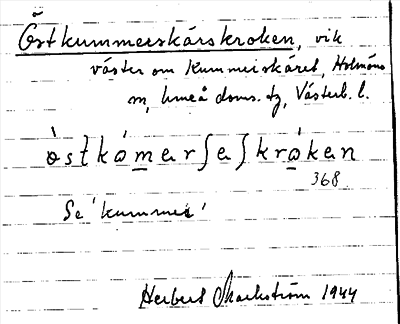 Östkummerskärskroken, vik
väster om Kummerskäret, Holmöns
sn, Umeå doms. tg, Västerb. l.
ò̀stkómarʃaʃkrókan
368
Se 'kummer'
Herbert Markström 1944